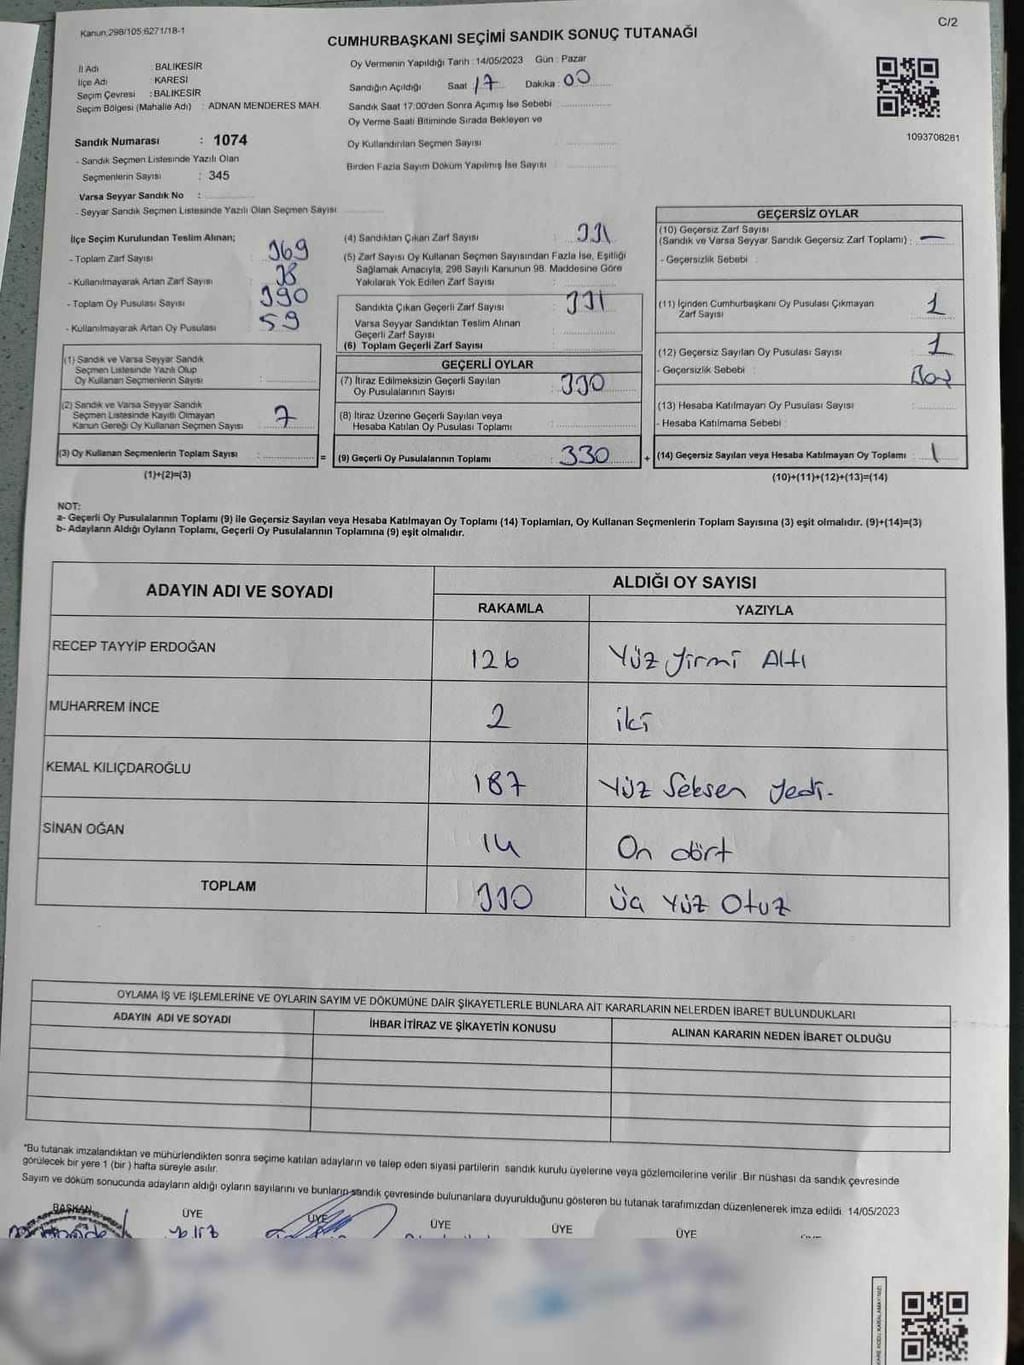 Kanun:298/105;6271/18-1
C/2
CUMHURBAŞKANI SEÇİMİ SANDIK SONUÇ TUTANAĞI
İl Adı : BALIKESİR
İlçe Adı : KARESİ
Seçim Çevresi : BALIKESİR
Seçim Bölgesi (Mahalle Adı) : ADNAN MENDERES MAH.
Oy Vermenin Yapıldığı Tarih : 14/05/2023 Gün : Pazar
Sandığın Açıldığı Saat : 17 Dakika : 00
Sandık Saat 17:00'den Sonra Açımış İse Sebebi
Oy Verme Saati Bitiminde Sırada Bekleyen ve
Oy Kullandırılan Seçmen Sayısı
Birden Fazla Sayım Döküm Yapılmış İse Sayısı
1093708281
Sandık Numarası : 1074
- Sandık Seçmen Listesinde Yazılı Olan
Seçmenlerin Sayısı : 345
Varsa Seyyar Sandık No :
- Seyyar Sandık Seçmen Listesinde Yazılı Olan Seçmen Sayısı
İlçe Seçim Kurulundan Teslim Alınan;
- Toplam Zarf Sayısı 369
- Kullanılmayarak Artan Zarf Sayısı 38
- Toplam Oy Pusulası Sayısı 390
- Kullanılmayarak Artan Oy Pusulası 59
(1) Sandık ve Varsa Seyyar Sandık
Seçmen Listesinde Yazılı Olup
Oy Kullanan Seçmenlerin Sayısı :
(2) Sandık ve Varsa Seyyar Sandık
Seçmen Listesinde Kayıtlı Olmayan
Kanun Gereği Oy Kullanan Seçmen Sayısı 7
(3) Oy Kullanan Seçmenlerin Toplam Sayısı : =
(1)+(2)=(3)
(4) Sandıktan Çıkan Zarf Sayısı 331
(5) Zarf Sayısı Oy Kullanan Seçmen Sayısından Fazla İse, Eşitliği
Sağlamak Amacıyla, 298 Sayılı Kanunun 98. Maddesine Göre
Yakılarak Yok Edilen Zarf Sayısı :
Sandıkta Çıkan Geçerli Zarf Sayısı : 331
Varsa Seyyar Sandıktan Teslim Alınan
Geçerli Zarf Sayısı
(6) Toplam Geçerli Zarf Sayısı
GEÇERLİ OYLAR
(7) İtiraz Edilmeksizin Geçerli Sayılan
Oy Pusulalarının Sayısı : 330
(8) İtiraz Üzerine Geçerli Sayılan veya
Hesaba Katılan Oy Pusulası Toplamı
(9) Geçerli Oy Pusulalarının Toplamı : 330 +
GEÇERSİZ OYLAR
(10) Geçersiz Zarf Sayısı
(Sandık ve Varsa Seyyar Sandık Geçersiz Zarf Toplamı) : —
- Geçersizlik Sebebi :
(11) İçinden Cumhurbaşkanı Oy Pusulası Çıkmayan
Zarf Sayısı 1
(12) Geçersiz Sayılan Oy Pusulası Sayısı 1
- Geçersizlik Sebebi : Boş
(13) Hesaba Katılmayan Oy Pusulası Sayısı
- Hesaba Katılmama Sebebi :
(14) Geçersiz Sayılan veya Hesaba Katılmayan Oy Toplamı : 1
(10)+(11)+(12)+(13)=(14)
NOT:
a- Geçerli Oy Pusulalarının Toplamı (9) ile Geçersiz Sayılan veya Hesaba Katılmayan Oy Toplamı (14) Toplamları, Oy Kullanan Seçmenlerin Toplam Sayısına (3) eşit olmalıdır. (9)+(14)=(3)
b- Adayların Aldığı Oyların Toplamı, Geçerli Oy Pusulalarının Toplamına (9) eşit olmalıdır.
ADAYIN ADI VE SOYADI
ALDIĞI OY SAYISI
RAKAMLA YAZIYLA
RECEP TAYYİP ERDOĞAN 126 Yüz yirmi Altı
MUHARREM İNCE 2 iki
KEMAL KILIÇDAROĞLU 187 Yüz Seksen yedi-
SİNAN OĞAN 14 On dört
TOPLAM 330 Üç Yüz Otuz
OYLAMA İŞ VE İŞLEMLERİNE VE OYLARIN SAYIM VE DÖKÜMÜNE DAİR ŞİKAYETLERLE BUNLARA AİT KARARLARIN NELERDEN İBARET BULUNDUKLARI
ADAYIN ADI VE SOYADI İHBAR İTİRAZ VE ŞİKAYETİN KONUSU ALINAN KARARIN NEDEN İBARET OLDUĞU
*Bu tutanak imzalandıktan ve mühürlendikten sonra seçime katılan adayların ve talep eden siyasi partilerin sandık kurulu üyelerine veya gözlemcilerine verilir. Bir nüshası da sandık çevresinde
görülecek bir yere 1 (bir) hafta süreyle asılır.
Sayım ve döküm sonucunda adayların aldığı oyların sayılarını ve bunların sandık çevresinde bulunanlara duyurulduğunu gösteren bu tutanak tarafımızdan düzenlenerek imza edildi. 14/05/2023
BAŞKAN ÜYE ÜYE ÜYE ÜYE ÜYE